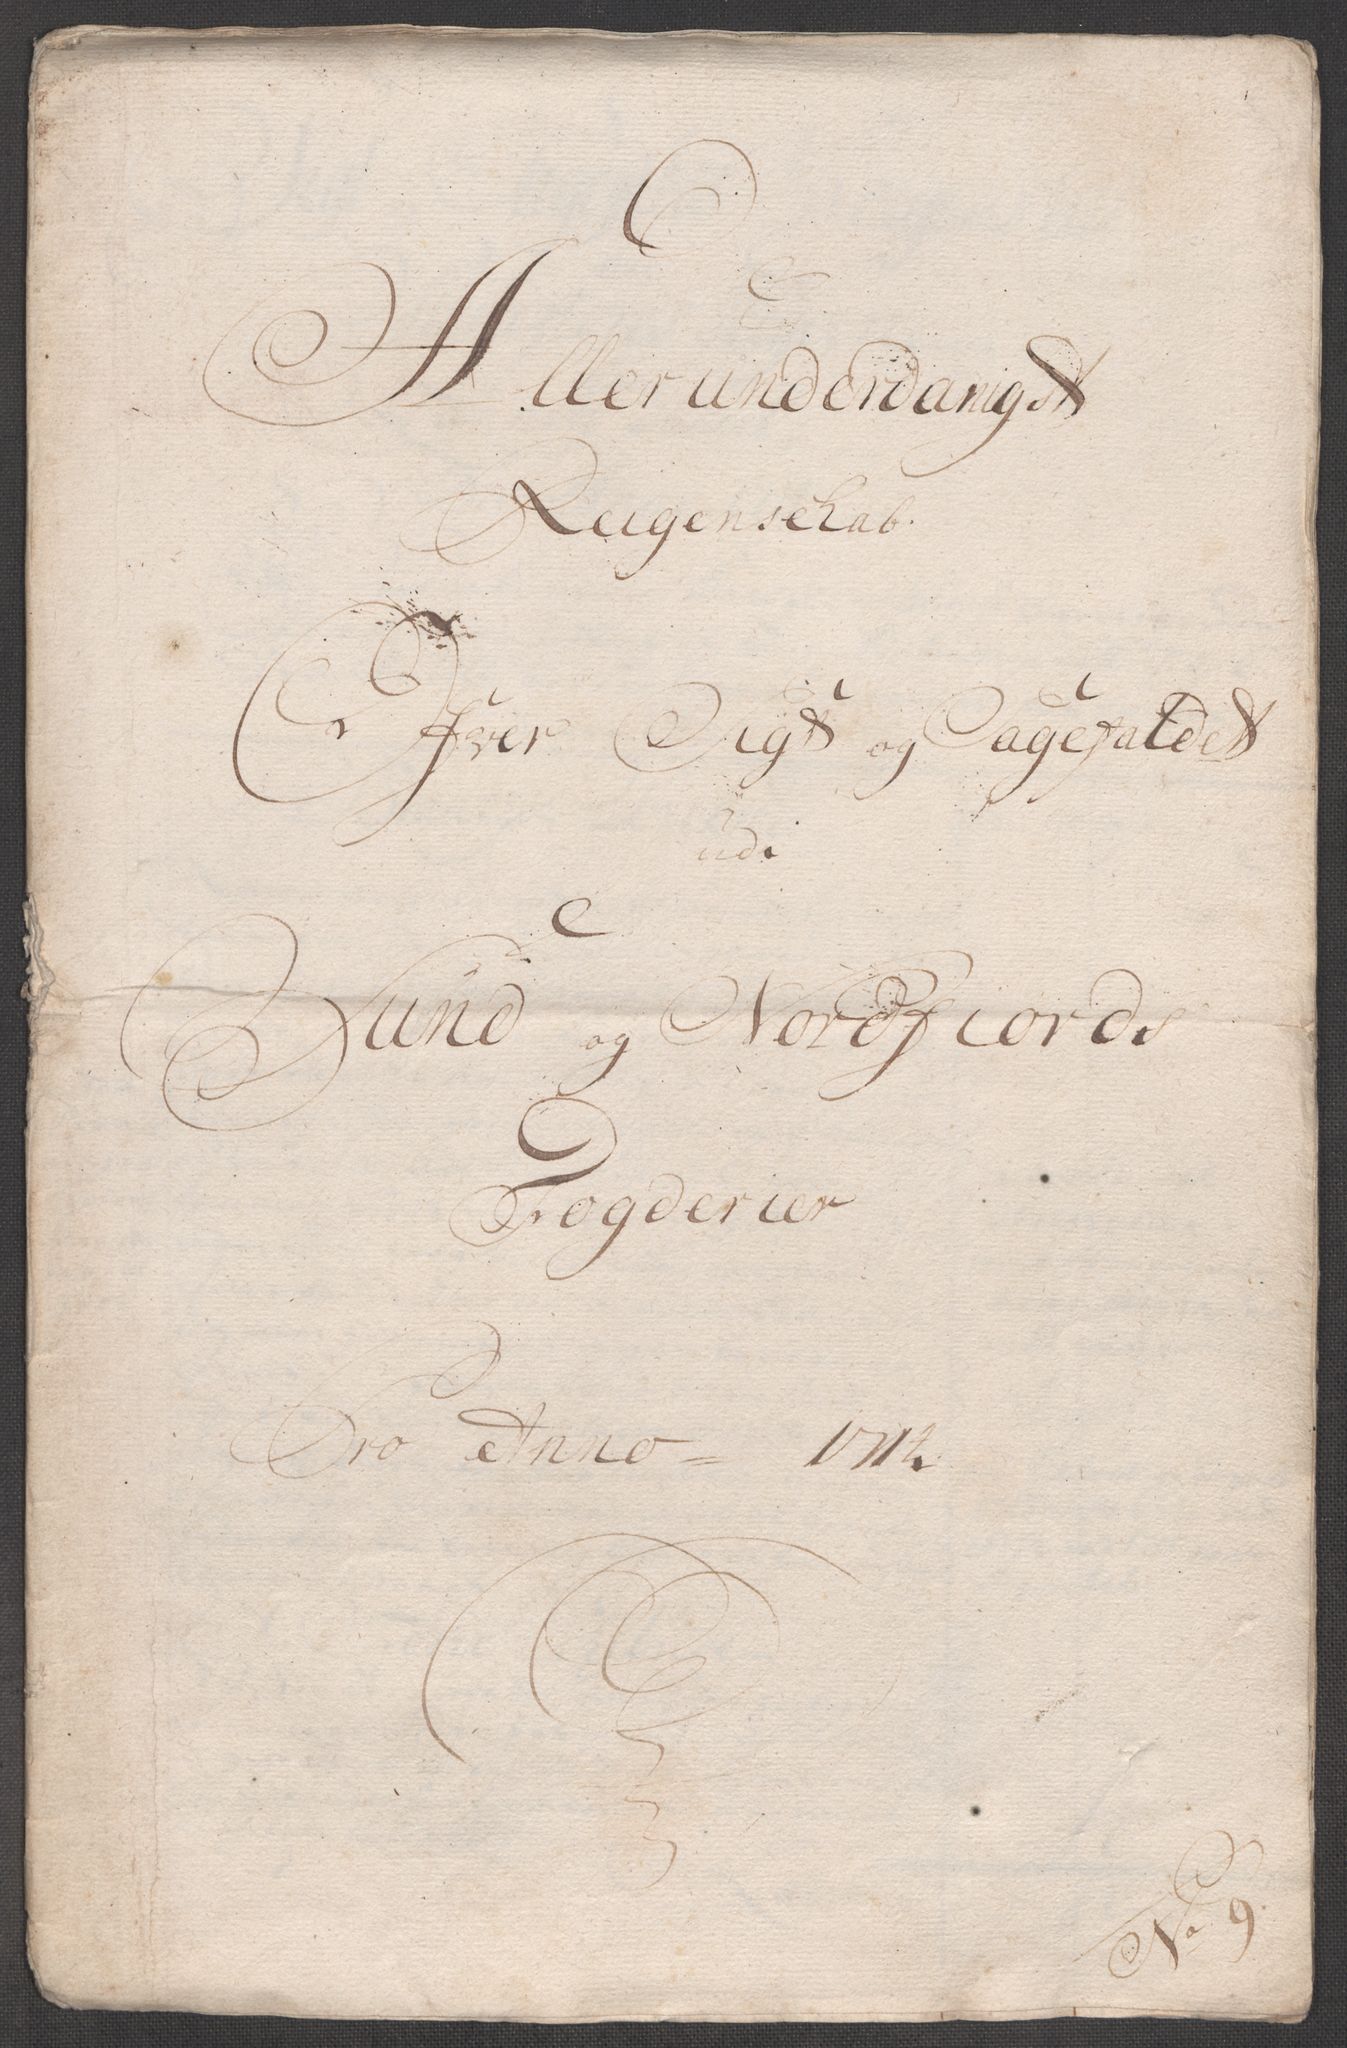 Allerunderdanigst
Reigenschab
Ofver Sigt og Sagefaldet
udi
Sund og Nordfiords
Fogderier
Pro Anno = 1712.
No 9.